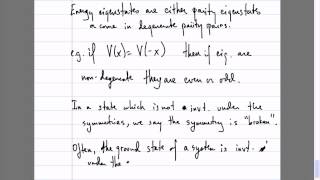 Energy eigenstates are either parity eigenstates
or come in degenerate parity pairs.
e.g. if V(x) = V(-x) then if eig. are
non-degenerate they are even or odd.
In a state which is not invt. under the
symmetries, we say the symmetry is "broken".
Often, the ground state of a system is invt.
under the